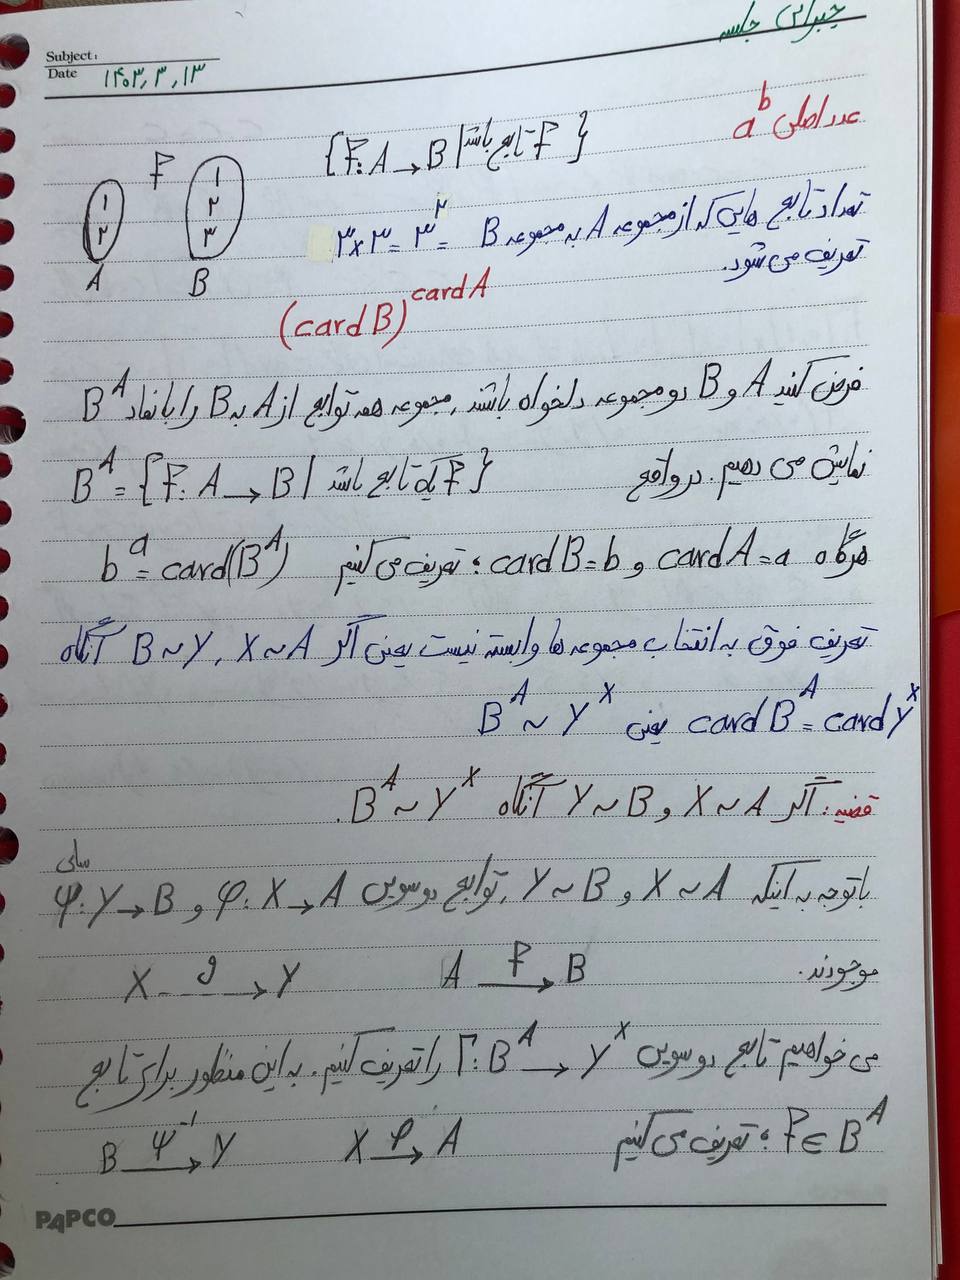 جبرانی جلسه
Subject:
Date ۱۴۰۳,۳,۱۳
عدد اصلی a^b
{F: A → B | F تابع باشد}
F
۱ ۲
۱ ۲ ۳
A B
تعداد تابع هایی که از مجموعه A به مجموعه B = ۳^۲ = ۳×۳
تعریف می شود.
(card B)^card A
فرض کنید A و B دو مجموعه دلخواه باشند, مجموعه همه توابع از A به B را با نماد B^A
نمایش می دهیم. در واقع B^A = {F: A → B | F یک تابع باشد}
هرگاه card A = a و card B = b ؛ تعریف می کنیم b^a = card(B^A)
تعریف فوق به انتخاب مجموعه ها وابسته نیست یعنی اگر X ~ A , B ~ Y آنگاه
card B^A = card Y^X یعنی B^A ~ Y^X
قضیه: اگر X ~ A و Y ~ B آنگاه B^A ~ Y^X.
با توجه به اینکه X ~ A و Y ~ B , توابع دوسویی φ: X → A و ψ: Y → B
سای
موجودند. A F→ B X g→ Y
می خواهیم تابع دوسویی Γ: B^A → Y^X را تعریف کنیم. به این منظور برای تابع
F ∈ B^A ؛ تعریف می کنیم X φ→ A B ψ^-1→ Y
PAPCO